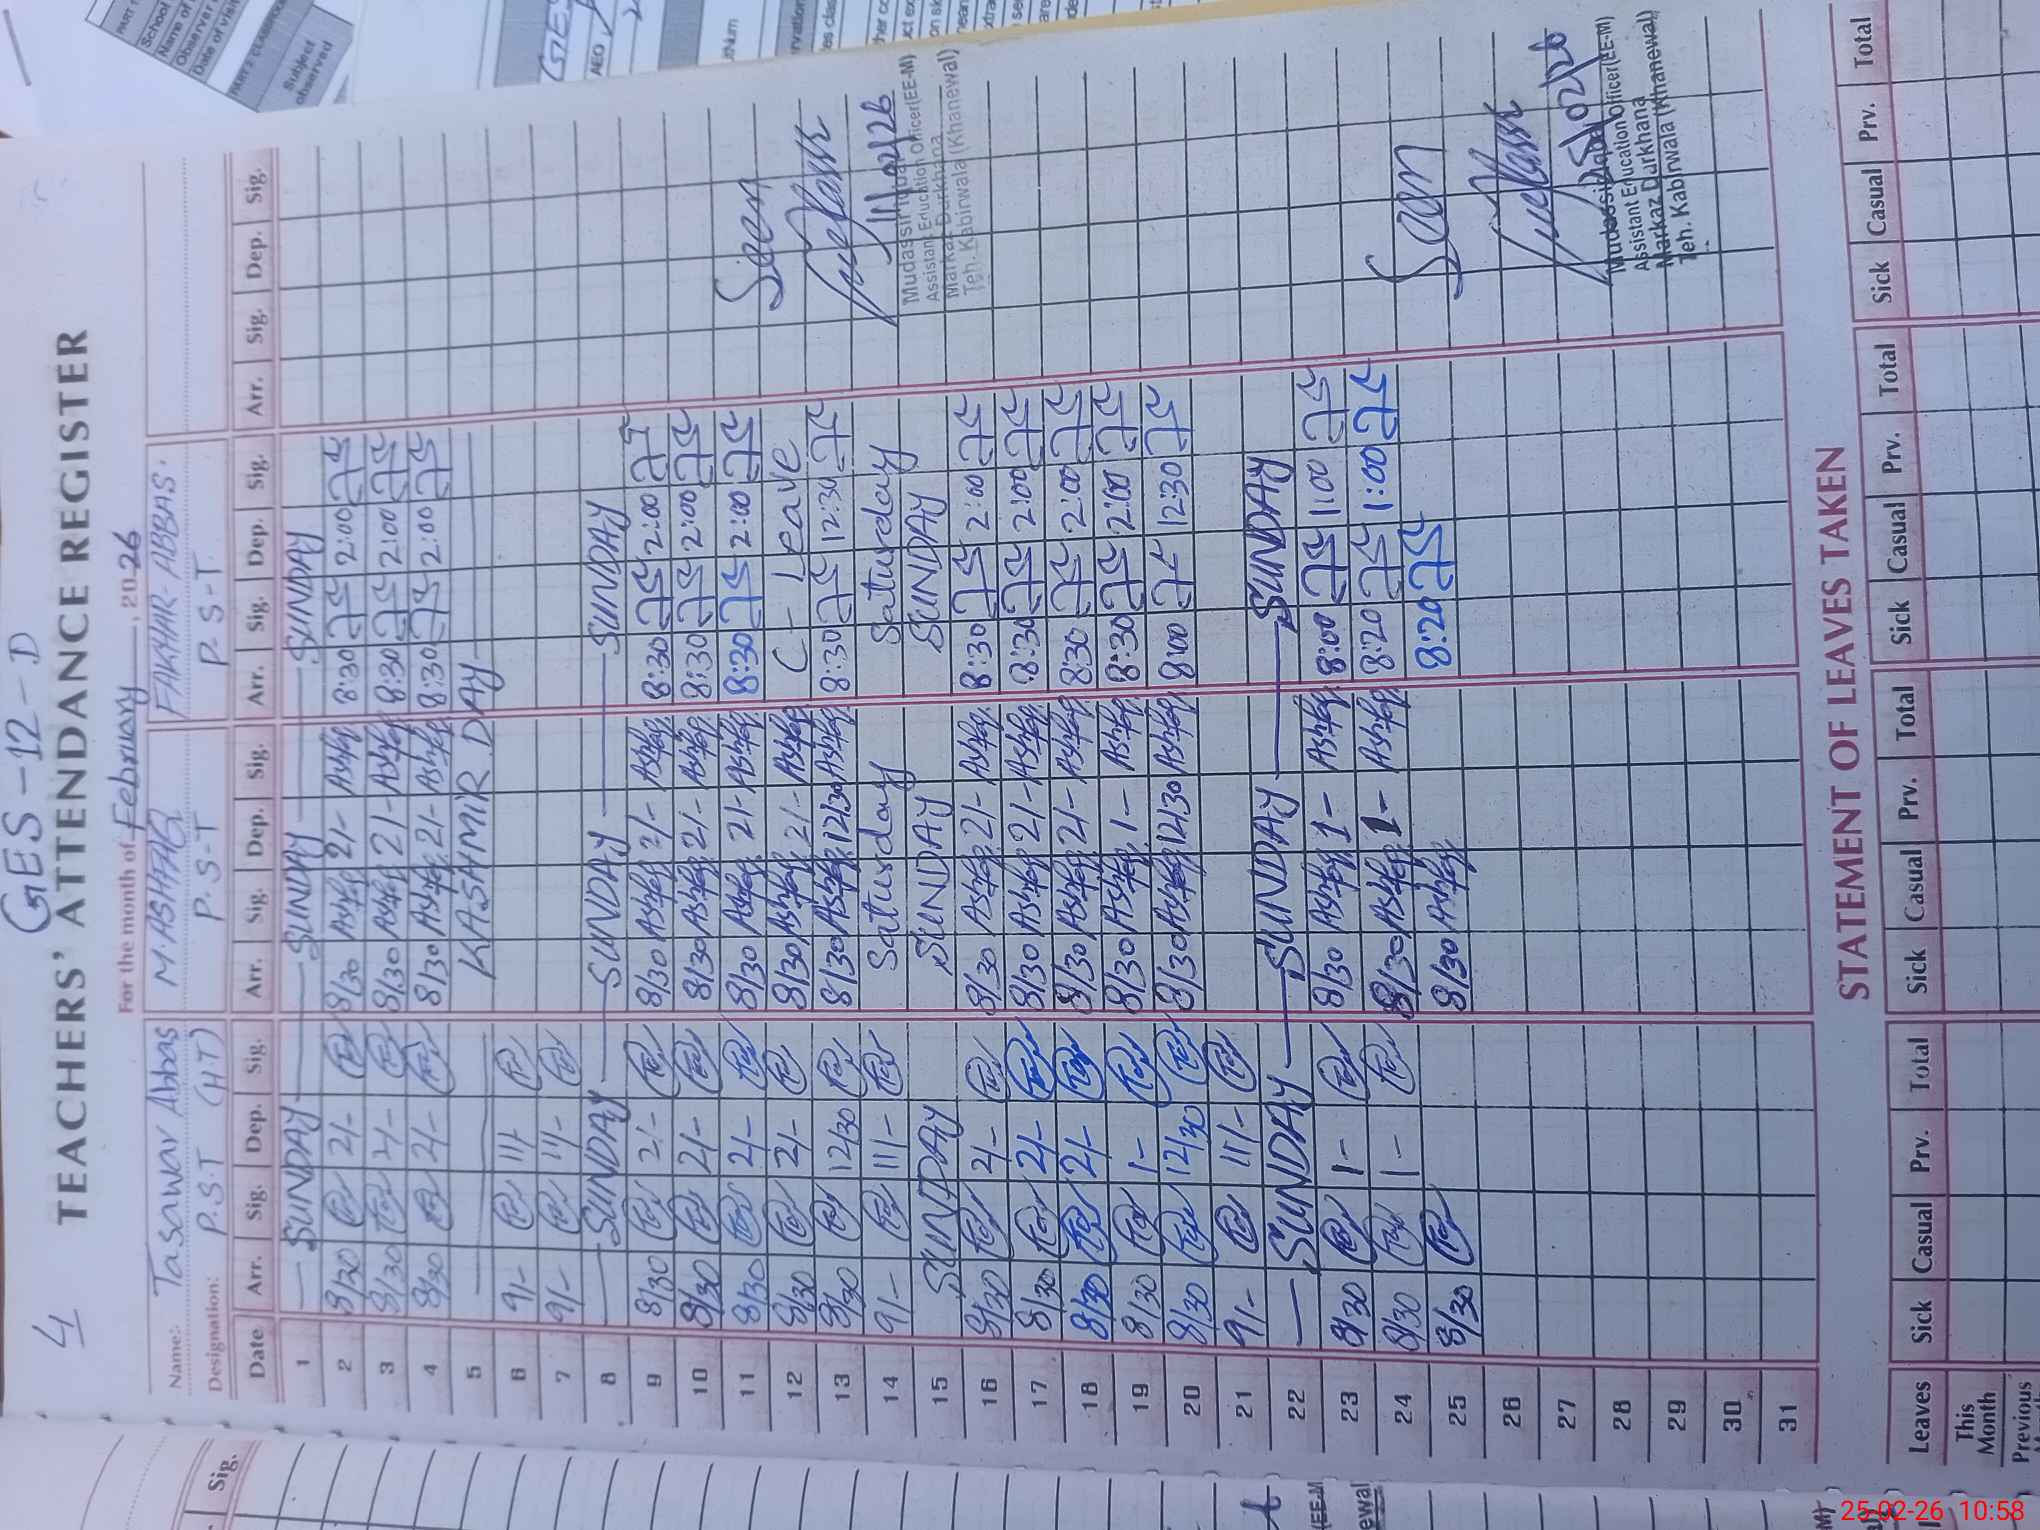 4
GES-12-D
TEACHERS' ATTENDANCE REGISTER
For the month of February, 2026
Name: Tasawar Abbas M. ASHFAQ FAKAHR-ABBAS.
Designation: P.S.T (HT) P.S-T P.S-T
Date Arr. Sig. Dep. Sig. Arr. Sig. Dep. Sig. Arr. Sig. Dep. Sig. Arr. Sig. Dep. Sig.
1 SUNDAY SUNDAY SUNDAY
2 8/30 2/- 8/30 Ashfaq 2/- Ashfaq 8:30 2:00
3 8/30 2/- 8/30 Ashfaq 2/- Ashfaq 8:30 2:00
4 8/30 2/- 8/30 Ashfaq 2/- Ashfaq 8:30 2:00
5 KASAMIR DAY
6 9/- 11/-
7 9/- 11/-
8 SUNDAY SUNDAY SUNDAY
9 8/30 2/- 8/30 Ashfaq 2/- Ashfaq 8:30 2:00
10 8/30 2/- 8/30 Ashfaq 2/- Ashfaq 8:30 2:00
11 8/30 2/- 8/30 Ashfaq 2/- Ashfaq 8:30 2:00 Seen
12 8/30 2/- 8/30 Ashfaq 2/- Ashfaq C-Leave
13 8/30 12/30 8/30 Ashfaq 12/30 Ashfaq 8:30 12:30
14 9/- 11/- Saturday Saturday 11/02/26
Mudassir Iqbal
Assistant Education Officer(EE-M)
Markaz Durkhana
Teh. Kabirwala (Khanewal)
15 SUNDAY SUNDAY SUNDAY
16 8/30 2/- 8/30 Ashfaq 2/- Ashfaq 8:30 2:00
17 8/30 2/- 8/30 Ashfaq 2/- Ashfaq 8:30 2:00
18 8/30 2/- 8/30 Ashfaq 2/- Ashfaq 8:30 2:00
19 8/30 1- 8/30 Ashfaq 1- Ashfaq 8:30 2:00
20 8/30 12/30 8/30 Ashfaq 12/30 Ashfaq 8:00 12:30
21 9/- 11/-
22 SUNDAY SUNDAY SUNDAY
23 8/30 1- 8/30 Ashfaq 1- Ashfaq 8:00 1:00
24 8/30 1- 8/30 Ashfaq 1- Ashfaq 8:20 1:00 Seen
25 8/30 8/30 Ashfaq 8:20
26
27 25/02/26
28
29
30
31
Mudassir Iqbal
Assistant Education Officer(EE-M)
Markaz Durkhana
Teh. Kabirwala (Khanewal)
STATEMENT OF LEAVES TAKEN
Leaves Sick Casual Prv. Total Sick Casual Prv. Total Sick Casual Prv. Total Sick Casual Prv. Total
This Month
Previous
Sig.
School
Name of
Observer
Date of visit
Subject observed
AEO
25-02-26 10:58